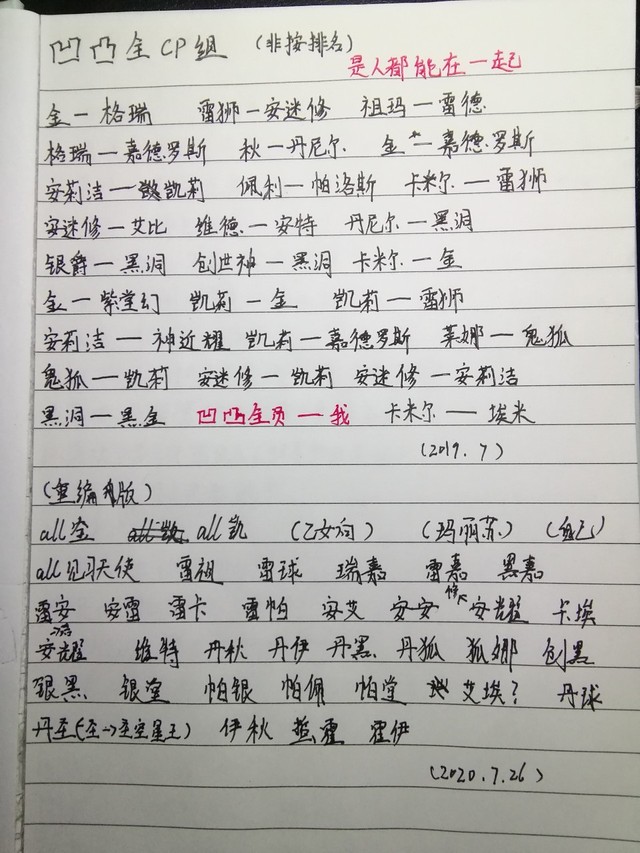 凹凸全CP组 (非按排名)
是人都能在一起
金一格瑞 雷狮一安迷修 祖玛一雷德
格瑞一嘉德罗斯 秋一丹尼尔 金一嘉德罗斯
安莉洁一凯莉 佩利一帕洛斯 卡米尔一雷狮
安迷修一艾比 维德一安特 丹尼尔一黑洞
银爵一黑洞 创世神一黑洞 卡米尔一金
金一紫堂幻 凯莉一金 凯莉一雷狮
安莉洁一神近耀 凯莉一嘉德罗斯 莱娜一鬼狐
鬼狐一凯莉 安迷修一凯莉 安迷修一安莉洁
黑洞一黑金 凹凸全员一我 卡米尔一埃米
(2019.7)
(重编版)
all金 all凯 (乙女向) (玛丽苏) (自己)
all见习天使 雷祖 雷球 瑞嘉 雷嘉 黑嘉
雷安 安雷 雷卡 雷帕 安艾 安安 安耀 卡埃
安耀 维特 丹秋 丹伊 丹黑 丹狐 狐娜 创黑
银黑 银堂 帕银 帕佩 帕堂 艾埃? 丹球
伊秋 霍伊
(2020.7.26)